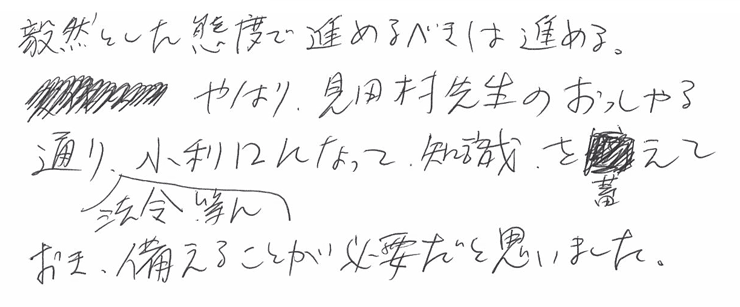 毅然とした態度で進めるべきは進める。
やはり、見田村先生のおっしゃる
通り、小利口になって、知識、を蓄えて
法令等
おき、備えることが必要だと思いました。